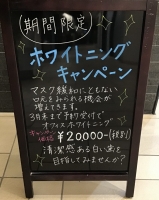 期間限定
ホワイトニング
キャンペーン
マスク緩和にともない
口元をみられる機会が
増えてきます。
3月末まで予約受けて
オフィスホワイトニング
キャンペーン価格 ¥20000-(税別)
清潔感ある白い歯を
目指してみませんか?